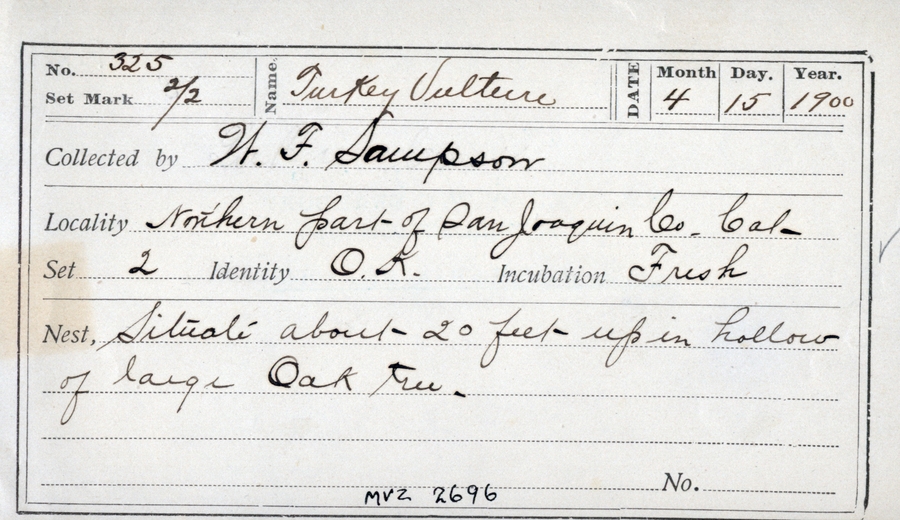 No. 325 Name. Turkey Vulture DATE Month Day. Year.
Set Mark 2/2 4 15 1900
Collected by W. F. Sampson
Locality Northern part of San Joaquin Co. Cal-
Set 2 Identity O.K. Incubation Fresh
Nest, Situate about 20 feet up in hollow
of large Oak tree.
No.
MVZ 2696